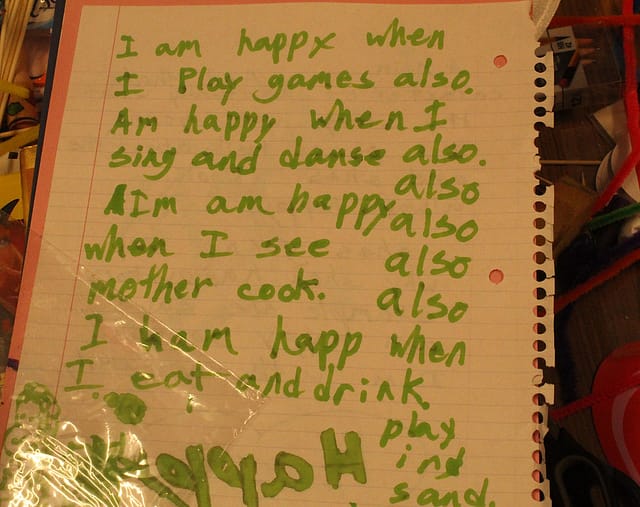 I am happy when
I Play games also.
Am happy when I
sing and danse also.
also
AIm am happy also
when I see also
mother cook. also
I ham happ when
I. eat and drink.
play
ind
sand.
Happy